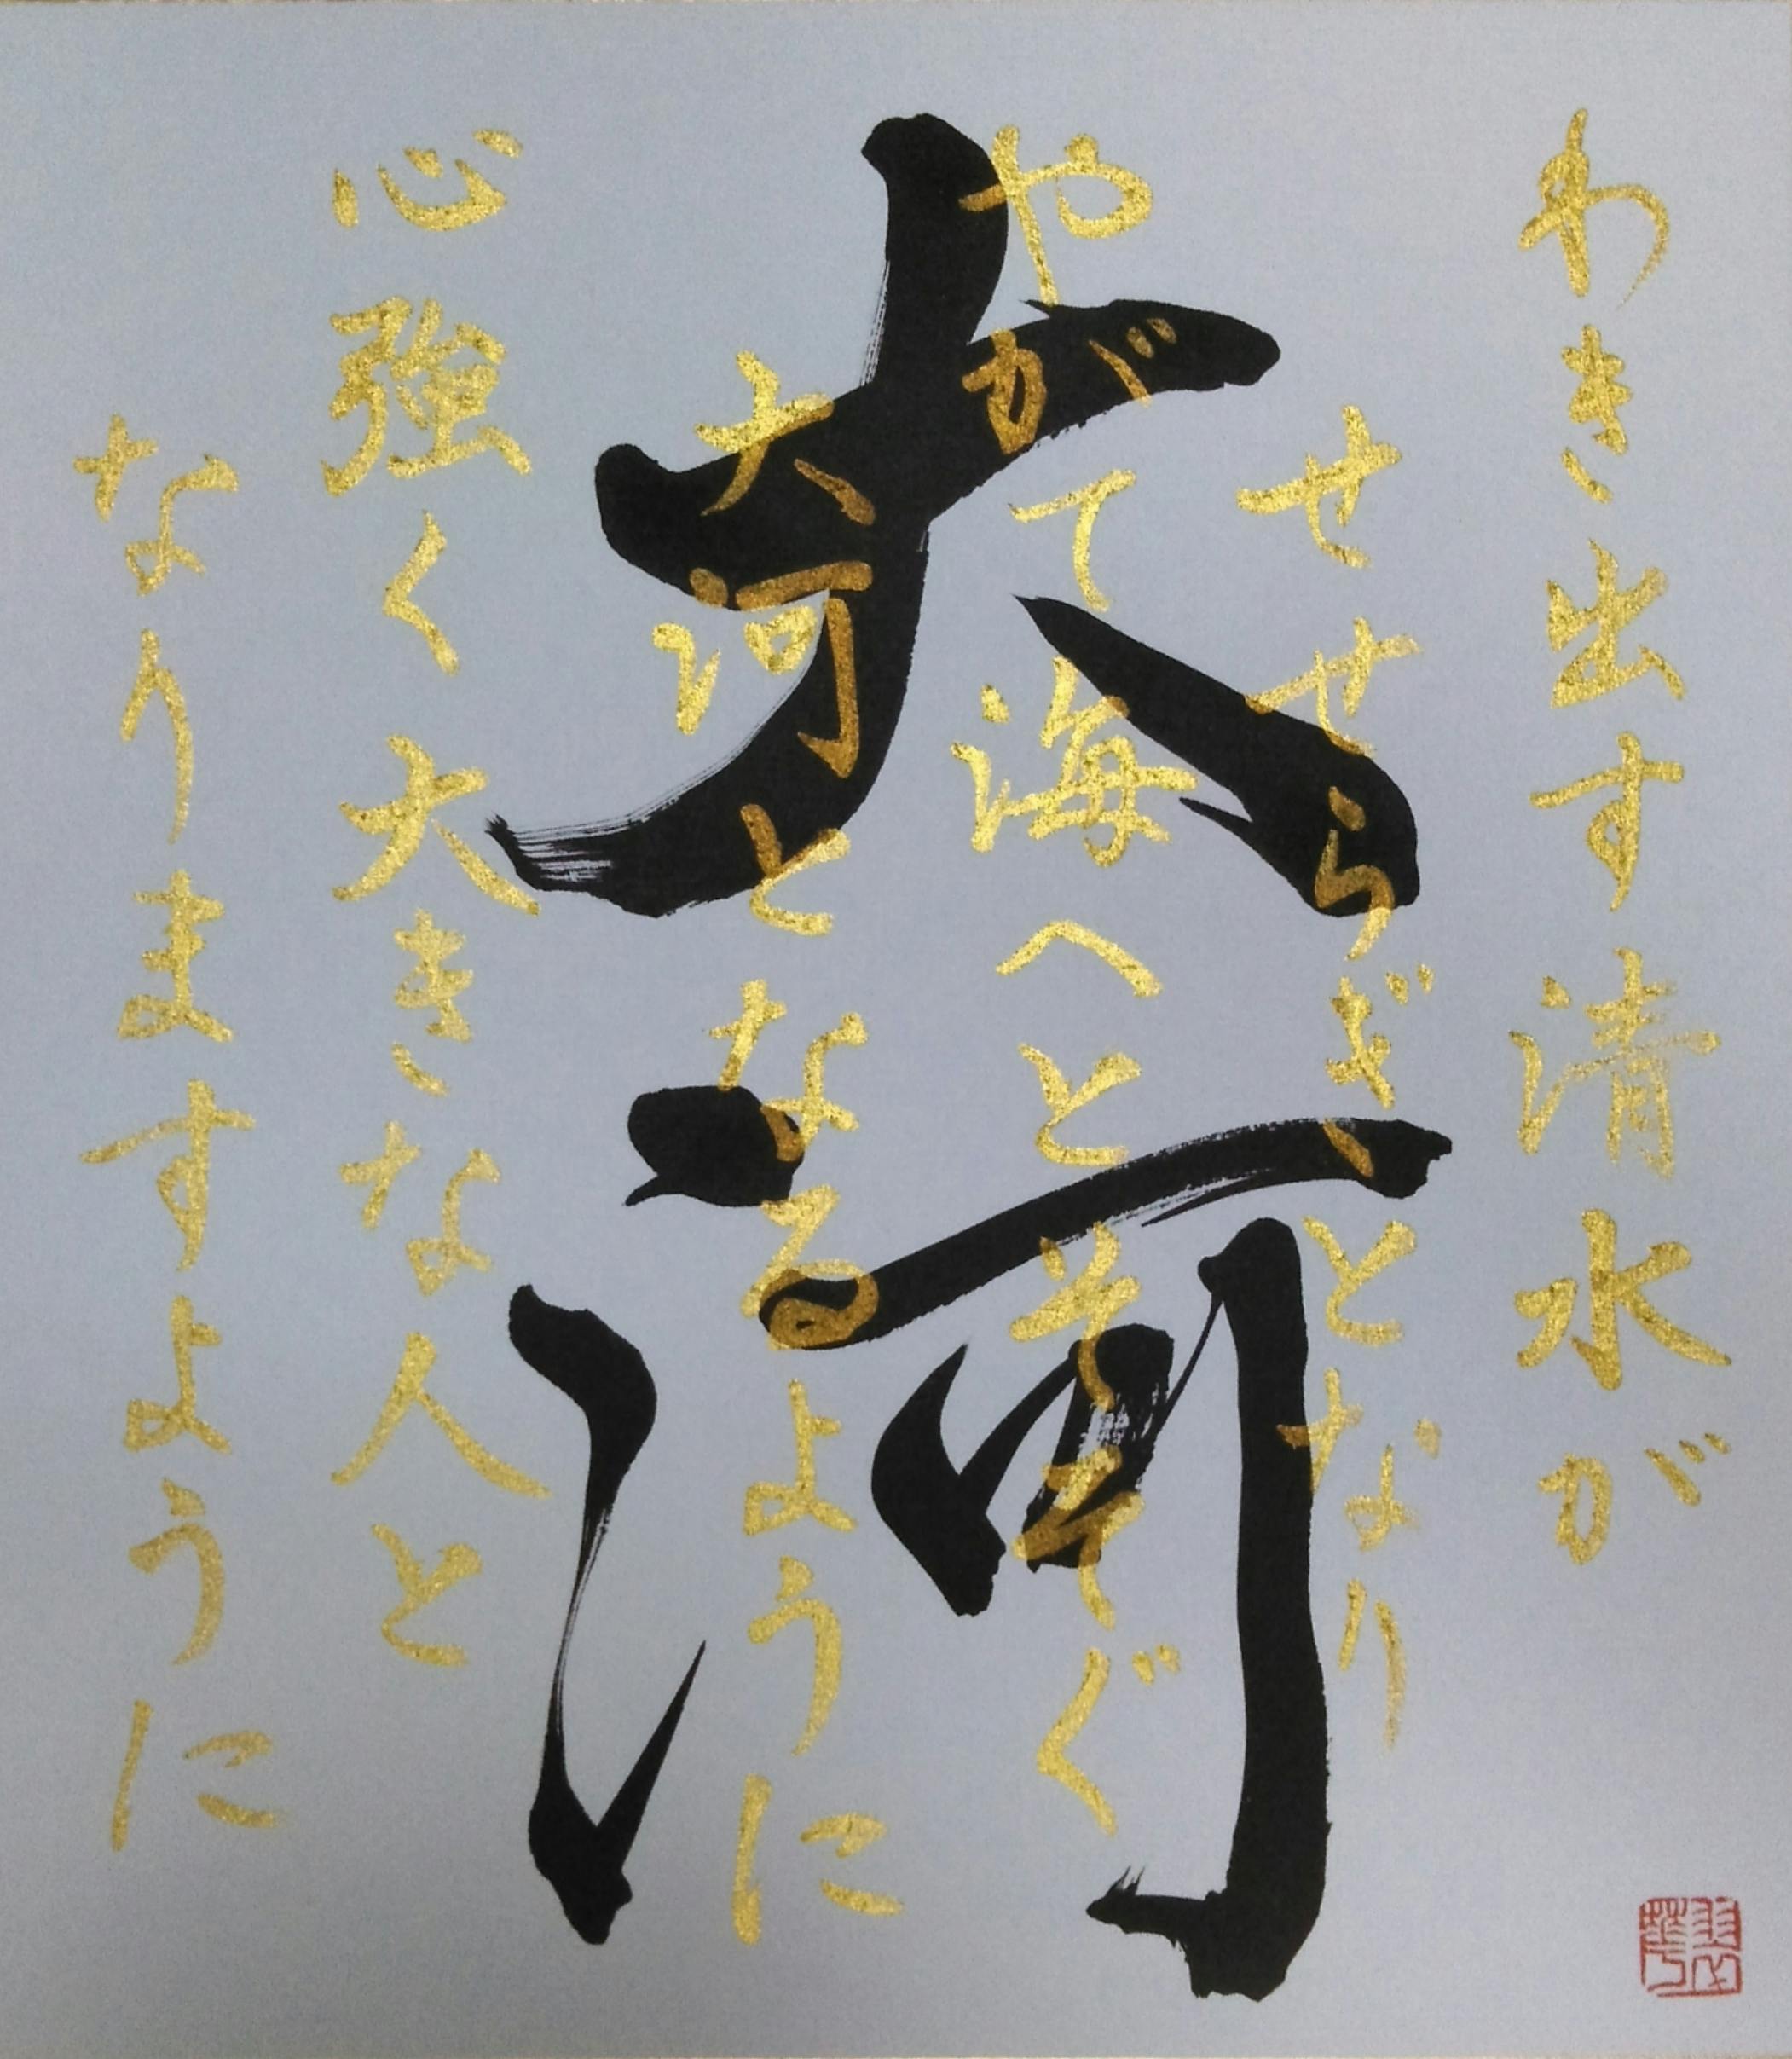 大河
わき出す清水が
せせらぎとなり
やがて海へとそそぐ
大河となるように
心強く大きな人と
なりますように